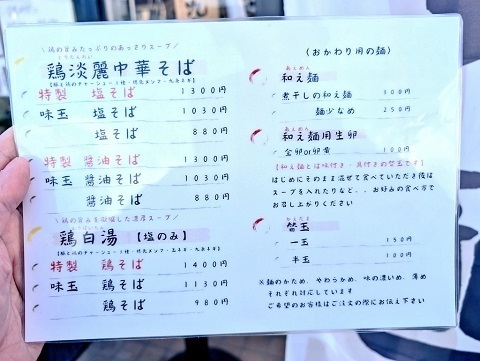 \ 鶏の旨みたっぷりのあっさりスープ /
鶏淡麗中華そば
特製 塩そば 1300円
味玉 塩そば 1030円
塩そば 880円
特製 醤油そば 1300円
味玉 醤油そば 1030円
醤油そば 880円
\ 鶏の旨みを凝縮した濃厚スープ /
鶏白湯【塩のみ】
特製 鶏そば 1400円
味玉 鶏そば 1130円
鶏そば 980円
(おかわり用の麺)
あえめん
和え麺
煮干しの和え麺 300円
麺少なめ 250円
あえめん
和え麺用生卵
全卵or卵黄 100円
【和え麺とは味付き・具付きの替玉です】
はじめにそのまま混ぜて食べていただき後は
スープを入れたりなど、、お好みの食べ方で
お召し上がりください
替玉
一玉 150円
半玉 100円
※麺のかため、やわらかめ、味の濃いめ、薄め
それぞれ対応しています
ご希望のお客様はご注文の際にお伝え下さい